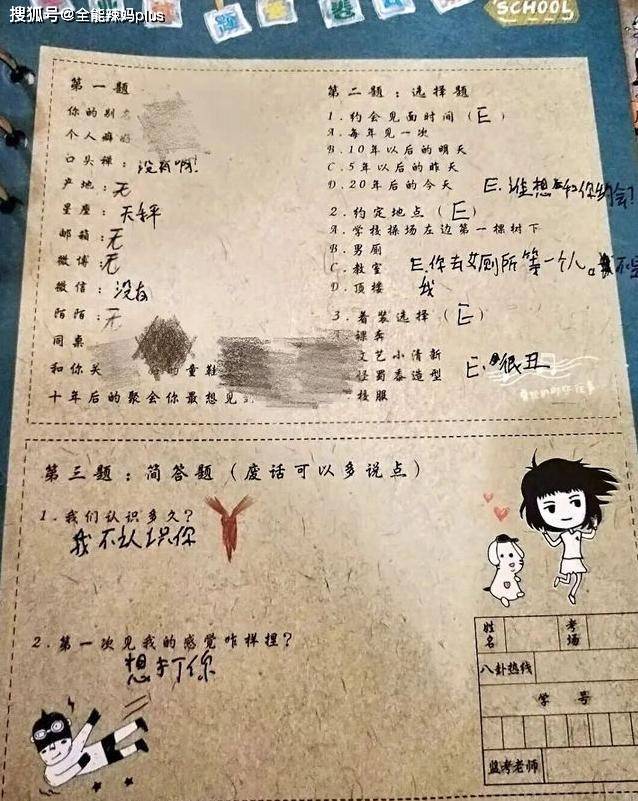 搜狐号@全能辣妈plus
SCHOOL
第一题
你的别
个人癖
口头禅：没有啊！
产地：无
星座：天秤
邮箱：无
微博：无
微信：没有
陌陌：无
同桌
和你关 的童鞋
十年后的聚会你最想见到
第二题：选择题
1.约会见面时间（E）
A.每年见一次
B.10年以后的明天
C.5年以后的昨天
D.20年后的今天 E.谁想和你约会？
2.约定地点（E）
A.学校操场左边第一棵树下
B.男厕
C.教室 E.你去女厕所等一个人。
D.顶楼 我
3.着装选择（E）
课桊
文艺小清新
怪蜀黍造型 E.很丑
校服
第三题：简答题（废话可以多说点）
1.我们认识多久？
我不认识你
2.第一次见我的感觉咋样捏？
想打你
姓名
考场
八卦热线
学号
监考老师